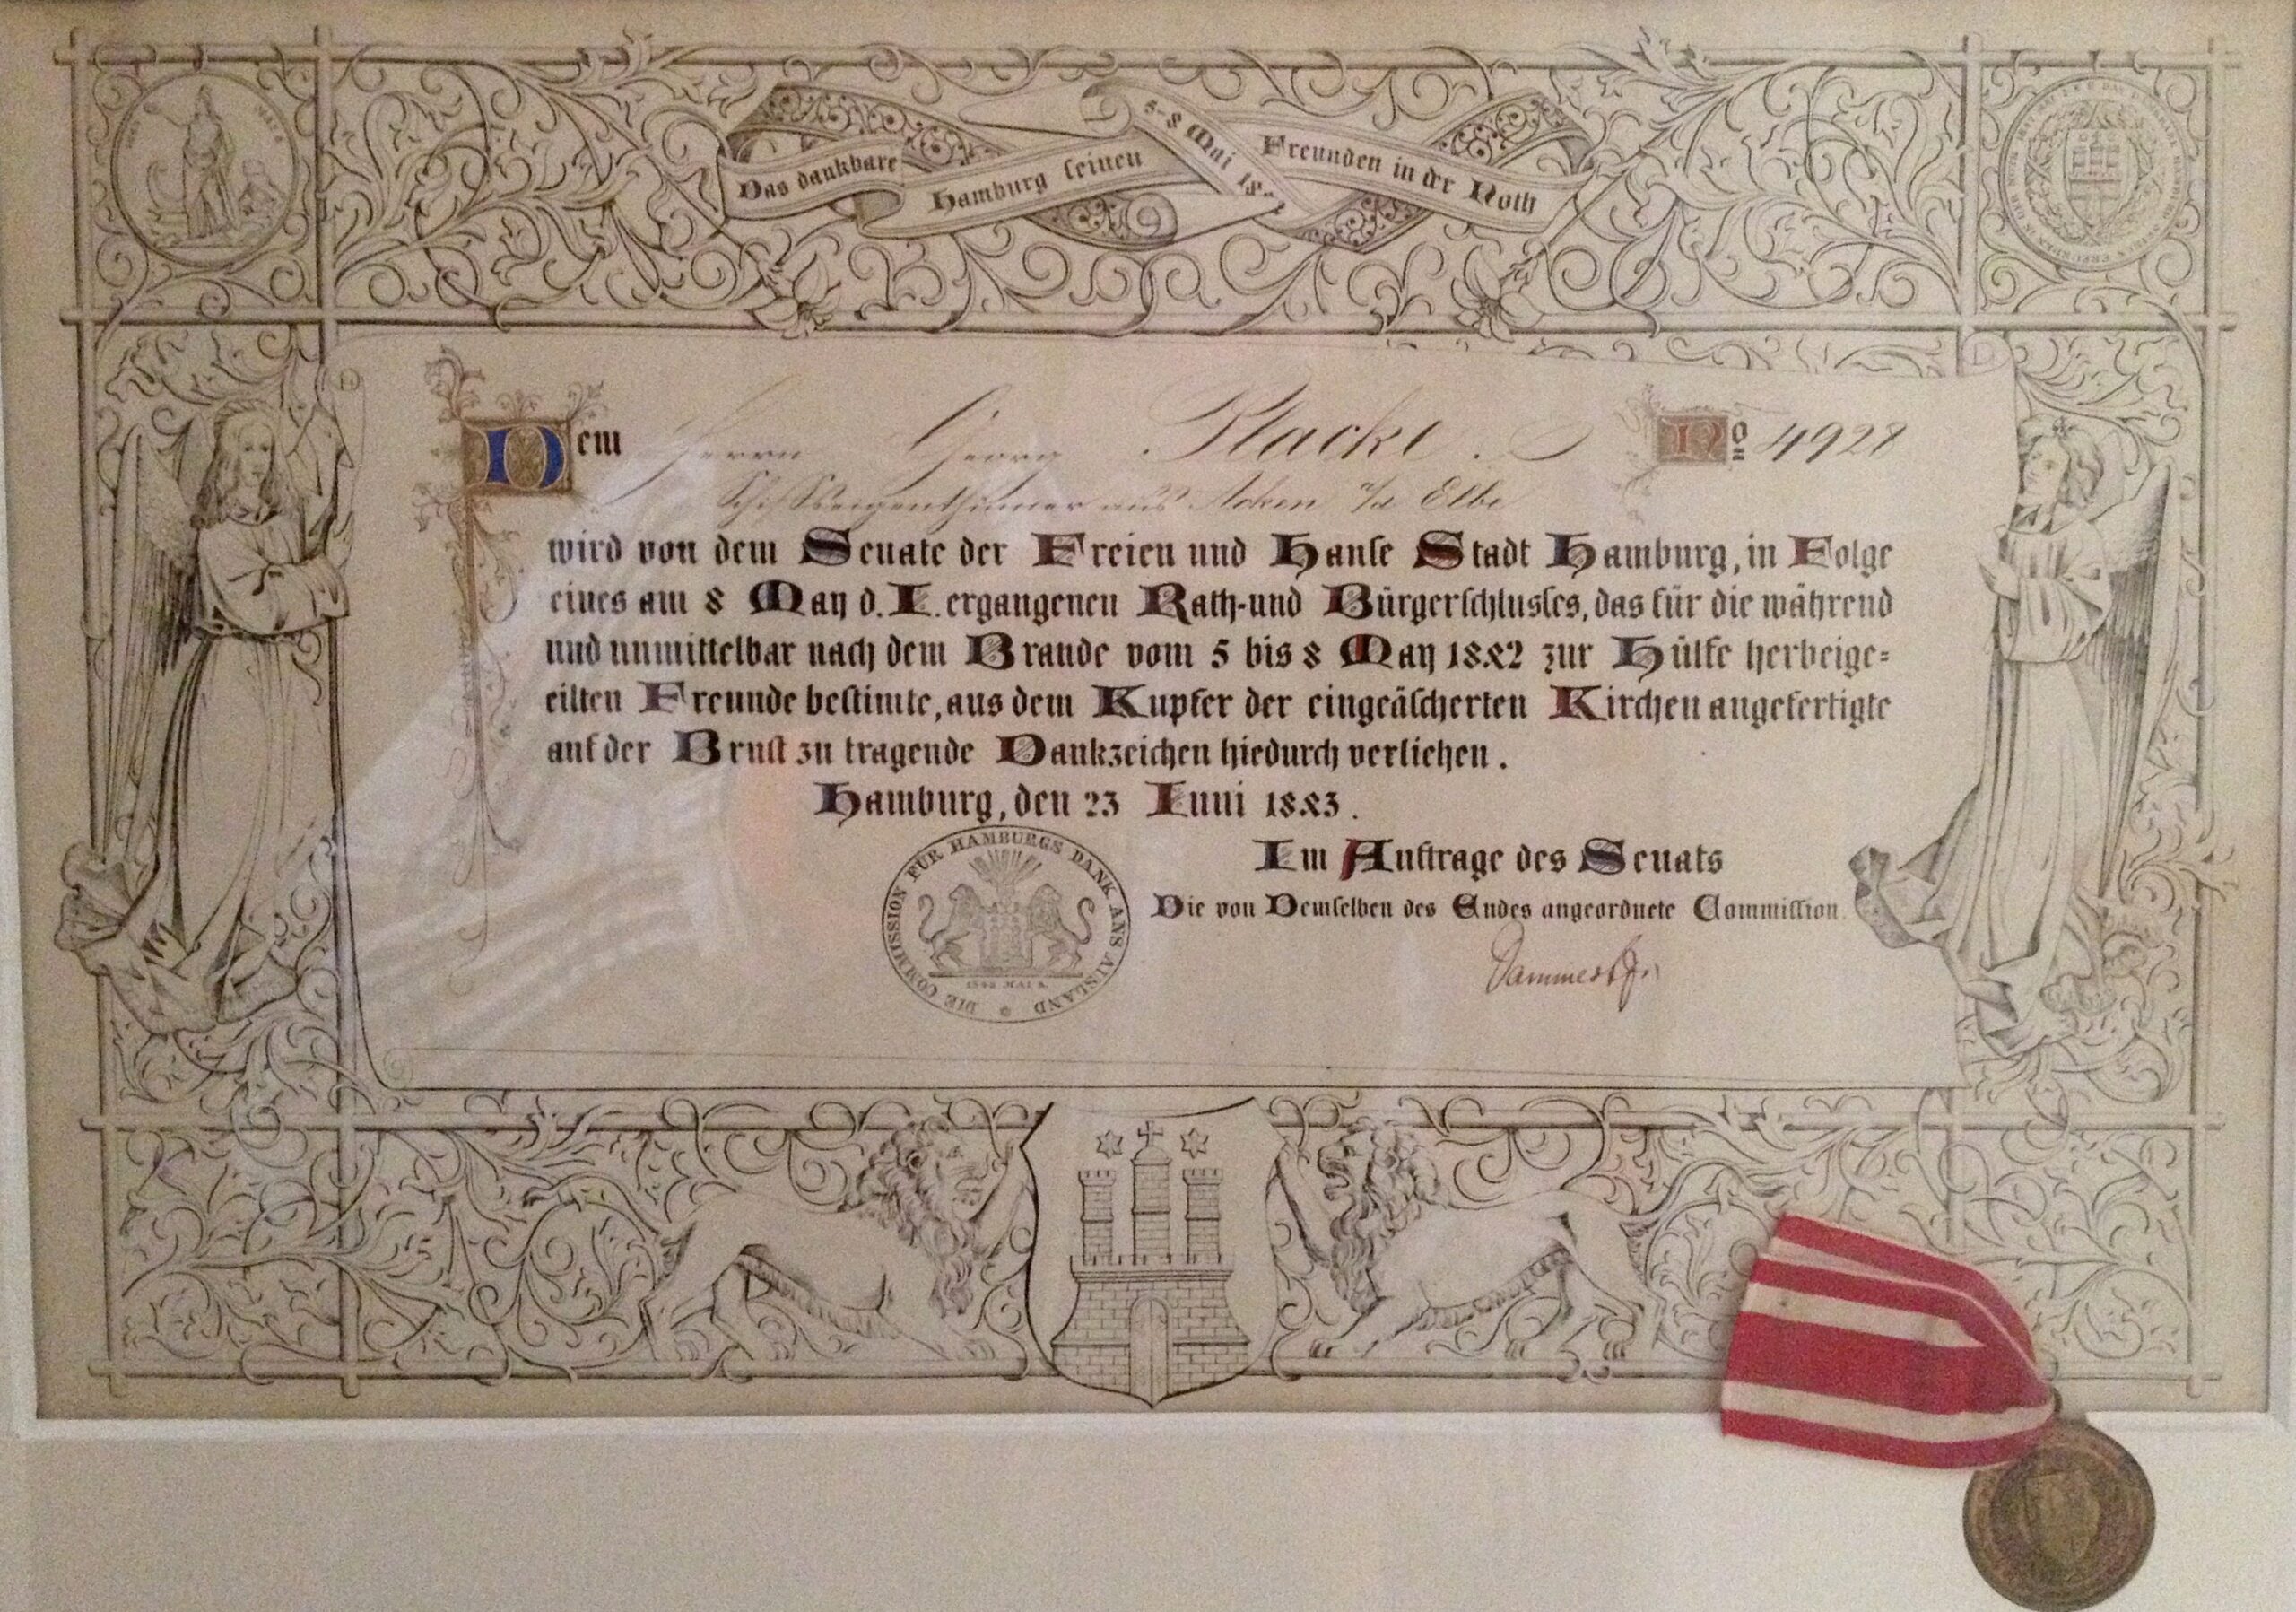 Das dankbare Hamburg seinen Freunden in der Noth
5-8 Mai 18
Dem Herrn Georg Placke. No 4928
Schiffseigenthümer aus Acken a/d Elbe
wird von dem Senate der Freien und Hanse Stadt Hamburg, in Folge
eines am 8 May d. I. ergangenen Rath-und Bürgerschlusses, das für die während
und unmittelbar nach dem Brande vom 5 bis 8 May 1842 zur Hülfe herbeige=
eilten Freunde bestimte, aus dem Kupfer der eingeäscherten Kirchen angefertigte
auf der Brust zu tragende Dankzeichen hiedurch verliehen.
Hamburg, den 23 Iuni 1843.
Im Auftrage des Senats
Die von Demselben des Endes angeordnete Commission
DIE COMMISSION FÜR HAMBURGS DANK ANS AUSLAND
1842 MAI 8.